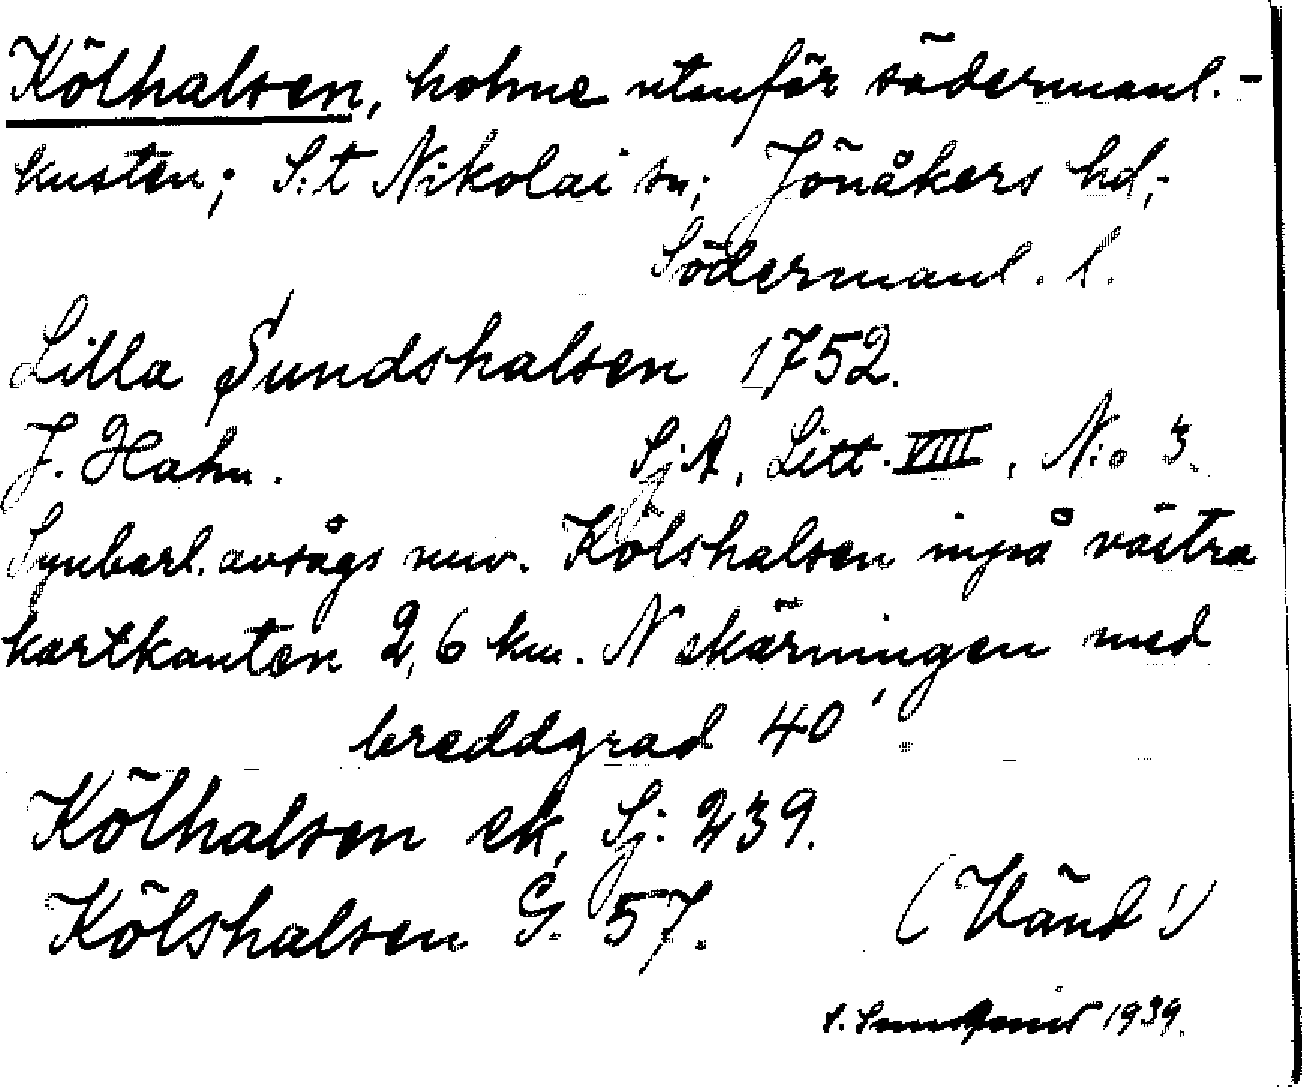 Kölhalsen, holme utanför södermanl.-
kusten; S:t Nikolai sn; Jönåkers hd,-
Södermanl. l.
Lilla Sundshalsen 1752.
J. Hahn. Sj.A, Litt. VIIII, N:o 3.
Synbarl. avsågs nuv. Kölshalsen inpå västra
kartkanten 2,6 km. N skärningen med
breddgrad 40'.
Kölhalsen sk, Sj. 239.
Kölshalsen G. 57. (Vänd!)
1939.